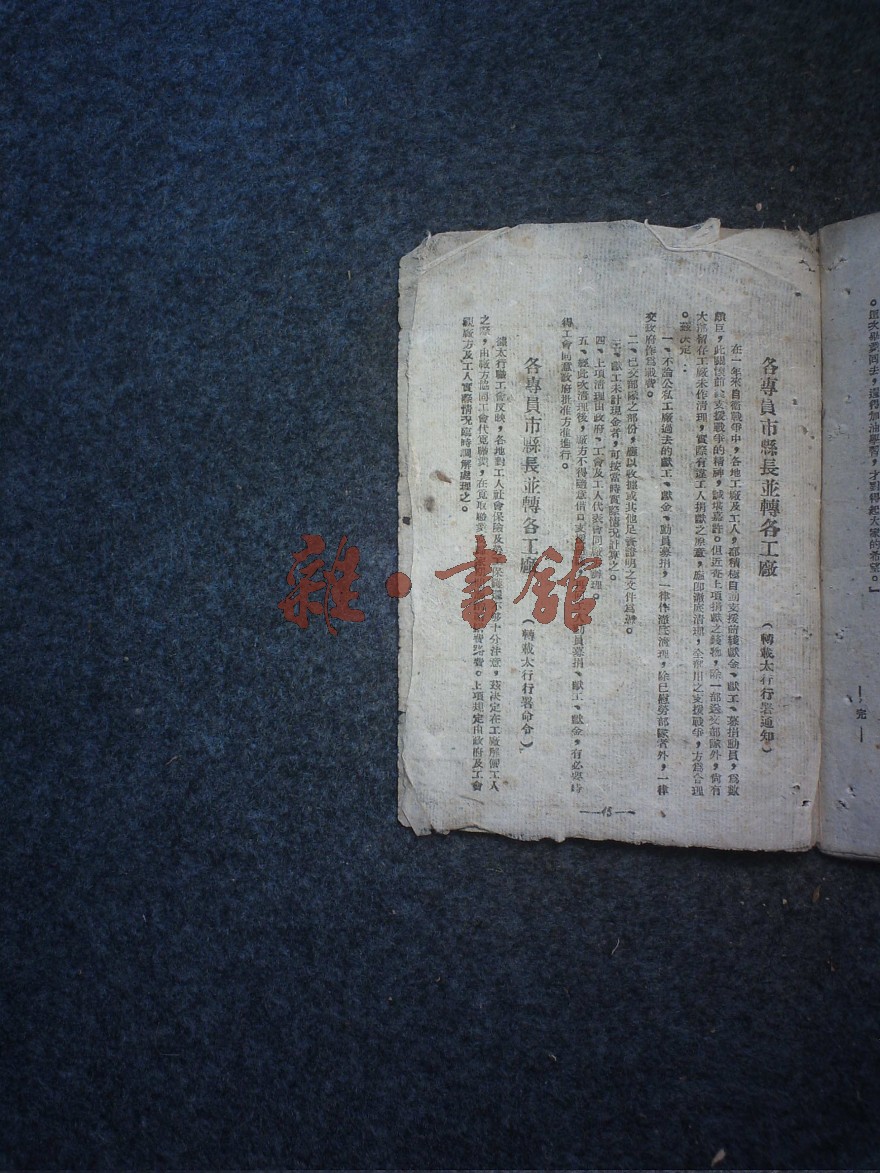 。這次畢業回去，還得加油學習，才對得起大家的希望。」
—完—
各專員市縣長並轉各工廠
（轉載太行行署通知）
在一年來自衛戰爭中，各地工廠及工人，都積極自動支援前綫獻金、獻工、募捐動員，為數
頗巨，此關懷前綫支援戰爭的精神，誠堪嘉許。但近查上項捐獻之錢物，除一部送交部隊外，尚有
大部留在工廠未作清理，實際有違工人捐獻之原意，應即澈底清理，全部用之支援戰爭，方為合理
。茲決定：
一、不論公私工廠過去的獻工、獻金、動員募捐，一律作澈底清理，除已慰勞部隊者外，一律
交政府作為戰費。
二、已交部隊之部份，應以收據或其他足資證明之文件為憑。
三、獻工未計現金者，可按當時實際情況計算之。
四、上項清理由政府、工會及工人代表會同廠方辦理。
五、經此次清理後，廠方不得隨意借口支援 動員募捐、獻工、獻金，有必要時
得工會同意政府批准方准進行。
各專員市縣長並轉各工廠
（轉載太行行署命令）
據太行職工會反映，各地對工人社會保險及勞 不够十分注意，茲決定在工廠解僱工人
之際，由廠方協同工會代覓職業，在覓取職業 費路費。上項規定由政府及工會
視廠方及工人實際情況臨時調解處理之。
—15—
雜·書館